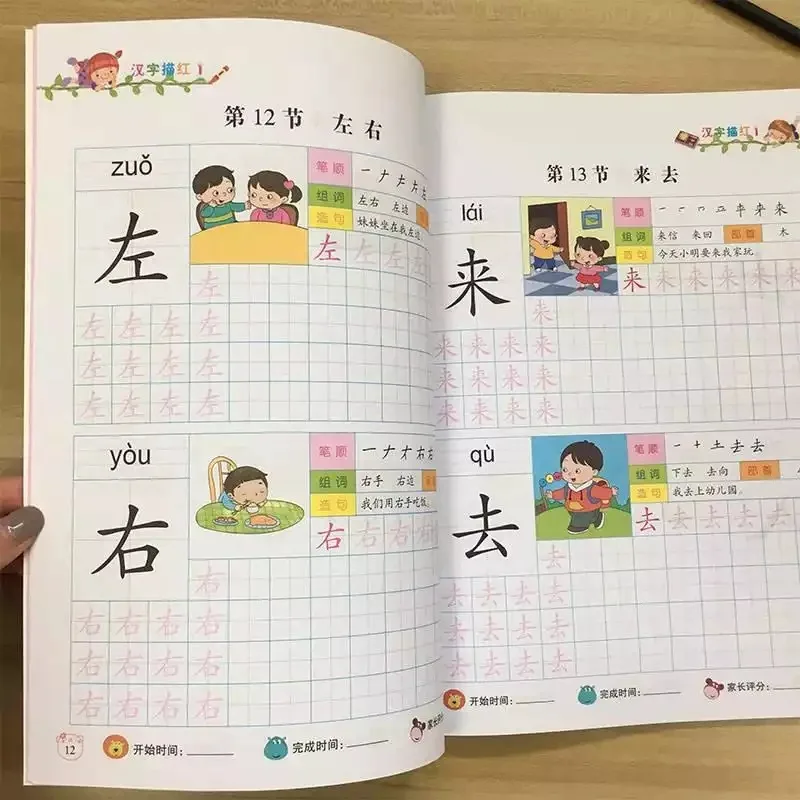 汉字描红1
第12节 左右
zuǒ
左
笔顺
组词 左右 左边
造句 妹妹坐在我左边
左 左 左 左 左
左
左 左 左 左
左 左 左 左
左 左 左 左
yòu
右
笔顺
组词 右手 右边
造句 我们用右手吃饭。
右 右 右 右 右
右
右 右 右 右
右 右 右 右
右 右 右 右
12 开始时间: 完成时间: 家长评
汉字描红1
第13节 来去
lái
来
笔顺
组词 来信 来回 部首 木
造句 今天小明要来我家玩
来 来 来 来 来 来
来
来 来 来 来
来 来 来 来
来 来 来 来
qù
去
笔顺 一 十 土 去 去
组词 下去 去向 部首
造句 我去上幼儿园。
去 去 去 去 去 去
去
去 去 去 去
去 去 去 去
去 去 去 去
开始时间: 完成时间: 家长评分: